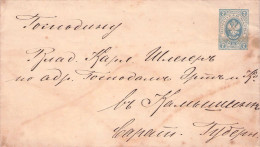 Господину
Клад. Карл Шлегер
по адр. Господам Эртъ и К°
въ Камышинъ
Сарат. Губерн